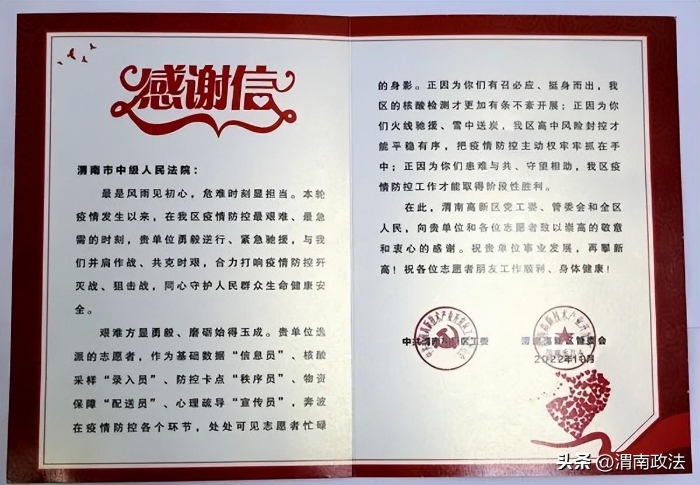 感谢信
渭南市中级人民法院：
最是风雨见初心，危难时刻显担当。本轮
疫情发生以来，在我区疫情防控最艰难、最急
需的时刻，贵单位勇毅逆行、紧急驰援，与我
们并肩作战、共克时艰，合力打响疫情防控歼
灭战、狙击战，同心守护人民群众生命健康安
全。
艰难方显勇毅、磨砺始得玉成。贵单位选
派的志愿者，作为基础数据“信息员”、核酸
采样“录入员”、防控卡点“秩序员”、物资
保障“配送员”、心理疏导“宣传员”，奔波
在疫情防控各个环节，处处可见志愿者忙碌
的身影。正因为你们有召必应、挺身而出，我
区的核酸检测才更加有条不紊开展；正因为你
们火线驰援、雪中送炭，我区高中风险封控才
能平稳有序，把疫情防控主动权牢牢抓在手
中；正因为你们患难与共、守望相助，我区疫
情防控工作才能取得阶段性胜利。
在此，渭南高新区党工委、管委会和全区
人民，向贵单位和各位志愿者致以崇高的敬意
和衷心的感谢。祝贵单位事业发展，再攀新
高！祝各位志愿者朋友工作顺利、身体健康！
中共渭南高新区工委 渭南高新区管委会
2022年10月
头条 @渭南政法